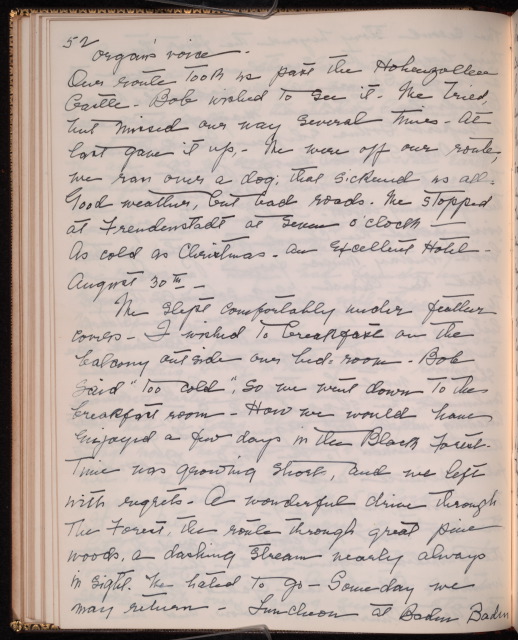 52
organ's voice -
Our route took us past the Hohenzollern
Castle - Bob wished to see it. We tried,
but missed our way several times - At
last gave it up, - We were off our route,
we ran over a dog; that sickened us all.
Good weather, but bad roads. We stopped
at Freudenstadt at seven o'clock —
As cold as Christmas - an Excellent Hotel -
August 30th —
We slept comfortably under feather
covers - I wished to breakfast on the
balcony outside our bed-room - Bob
said "too cold", so we went down to the
breakfast room - How we would have
enjoyed a few days in the Black Forest.
Time was growing short, and we left
with regrets - A wonderful drive through
the Forest, the route through great pine
woods, a dashing stream nearly always
in sight. We hated to go - Someday we
may return - Luncheon at Baden Baden